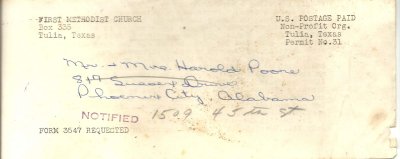 FIRST METHODIST CHURCH
Box 335
Tulia, Texas
U.S. POSTAGE PAID
Non-Profit Org.
Tulia, Texas
Permit No.31
Mr. + Mrs Harold Poore
819 Sussex Drive
Phoenix City, Alabama
NOTIFIED 1509 43 th st
FORM 3547 REQUESTED